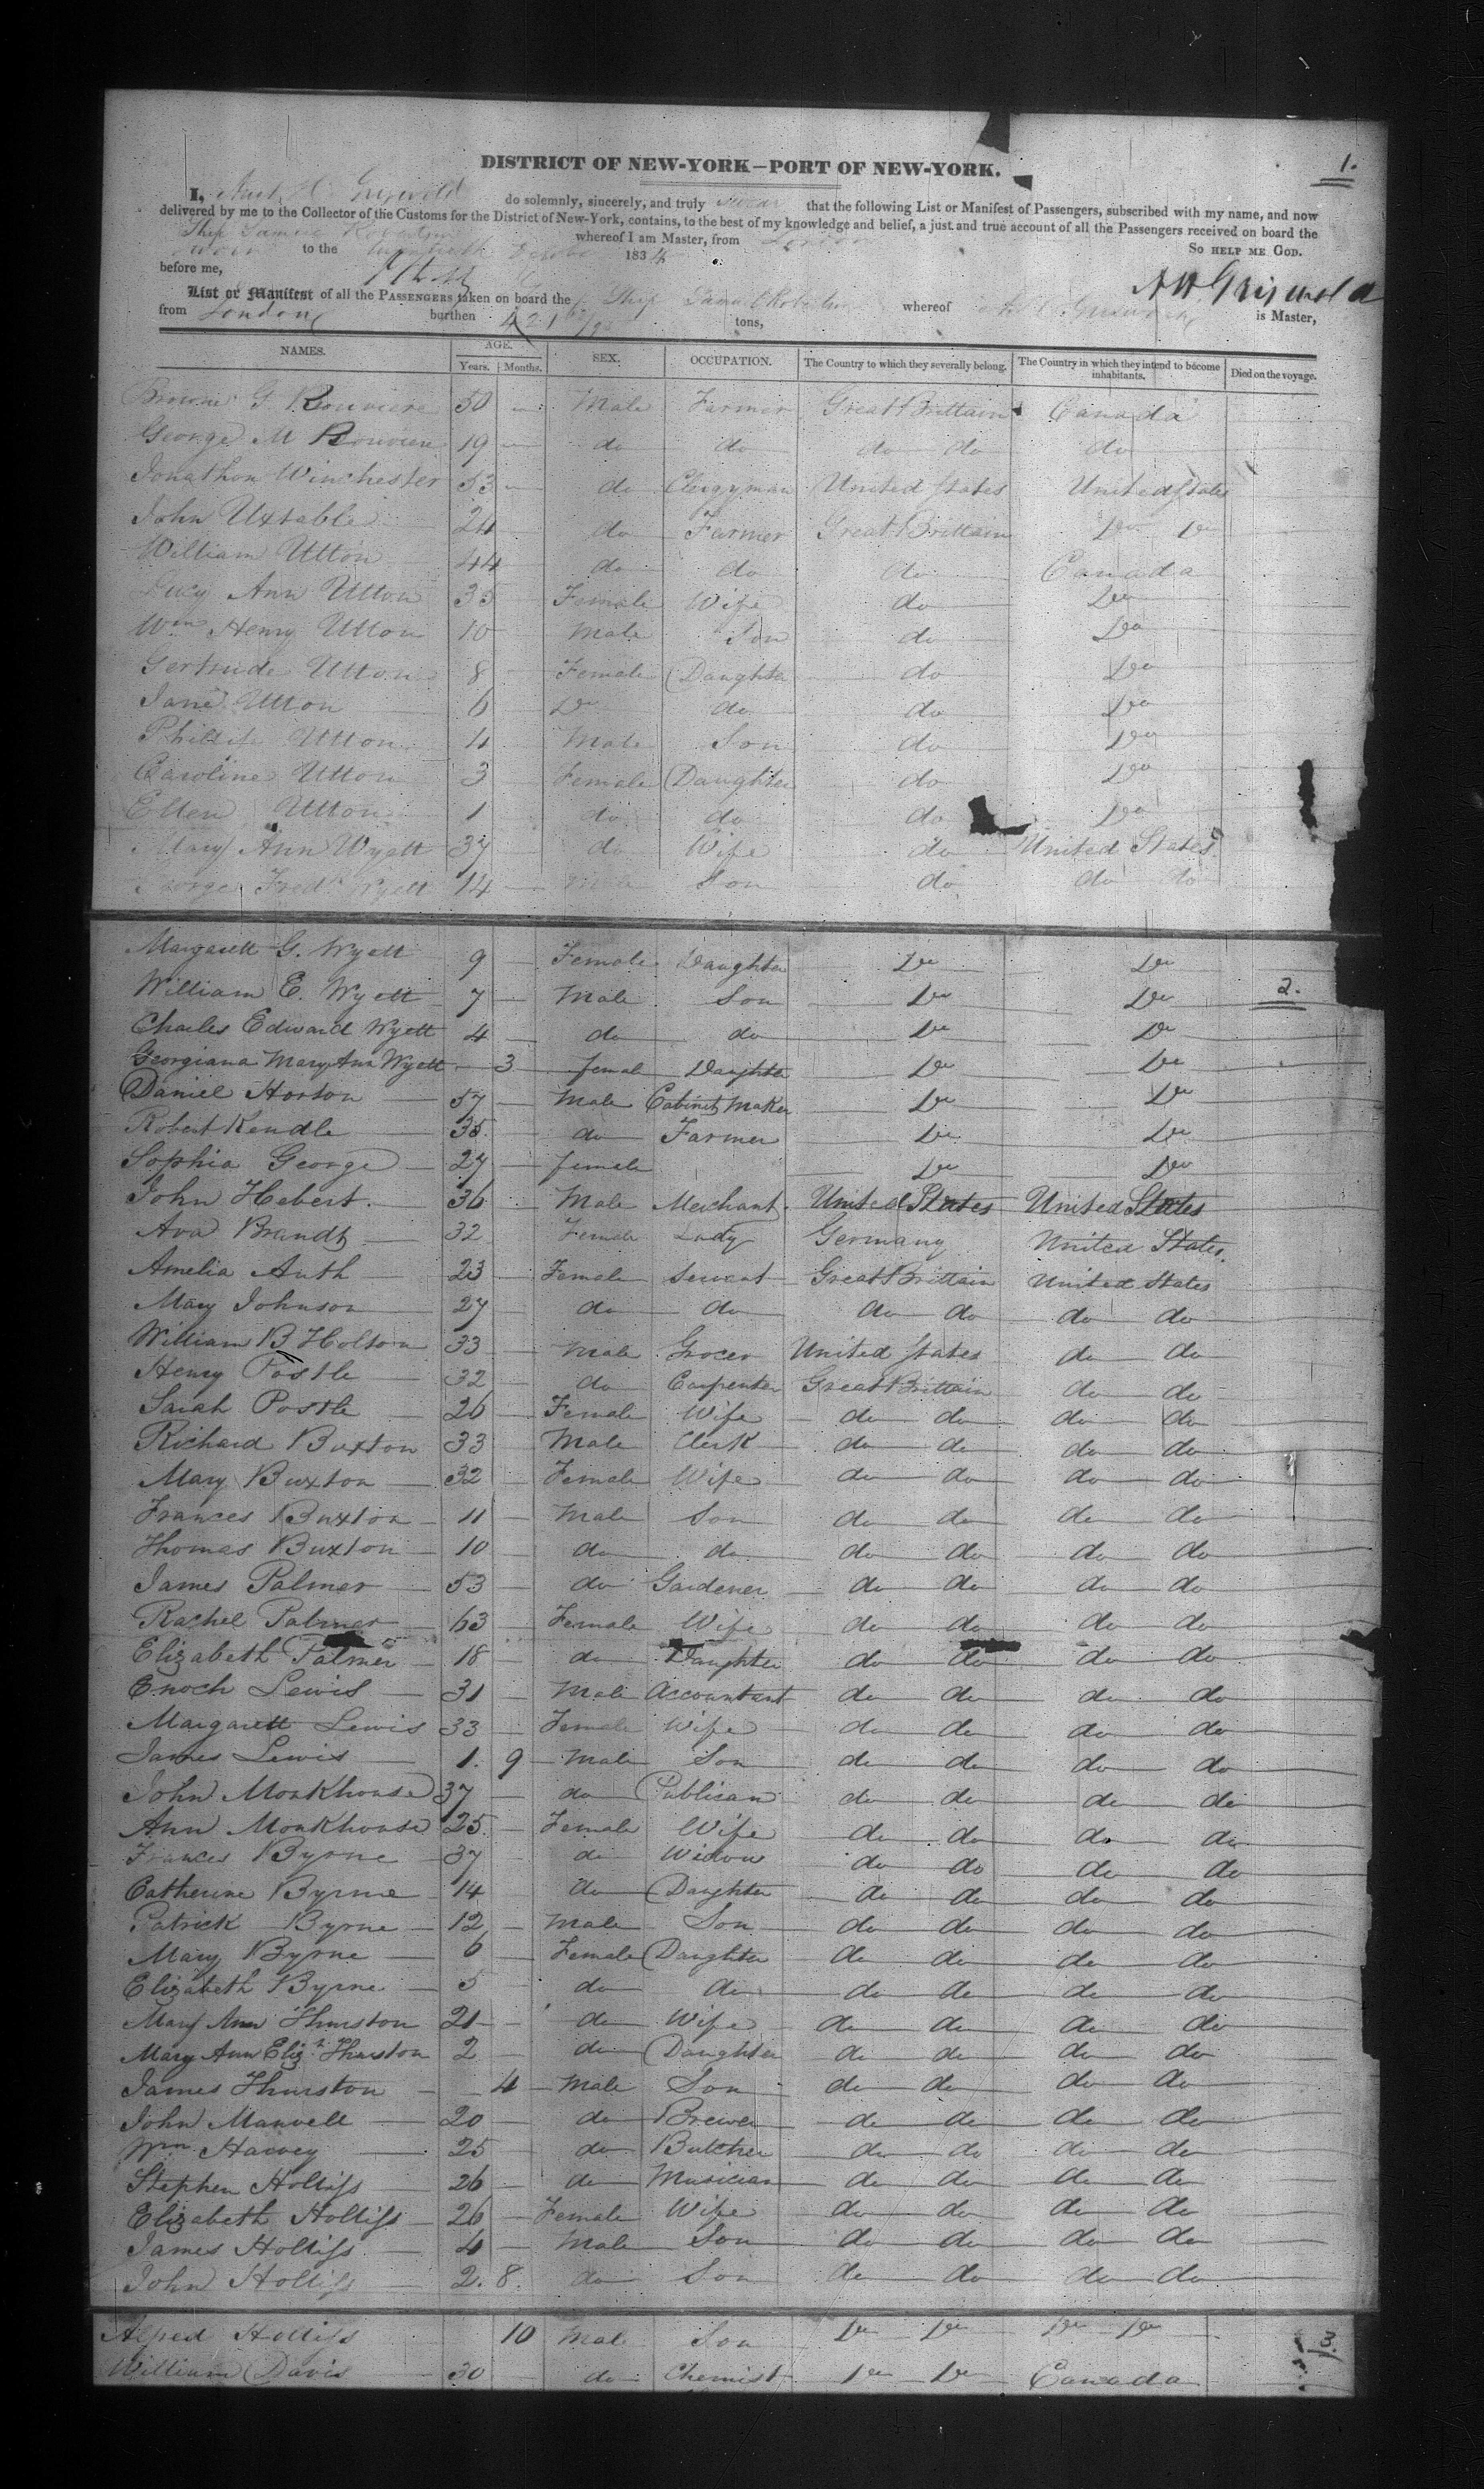 1.
DISTRICT OF NEW-YORK—PORT OF NEW-YORK.
I, Griswold do solemnly, sincerely, and truly swear that the following List or Manifest of Passengers, subscribed with my name, and now
delivered by me to the Collector of the Customs for the District of New-York, contains, to the best of my knowledge and belief, a just and true account of all the Passengers received on board the
Ship whereof I am Master, from London
to the 1834 So HELP ME GOD.
before me,
A H Griswold
List or Manifest of all the PASSENGERS taken on board the Ship whereof is Master,
from London burthen tons,
NAMES. AGE. SEX. OCCUPATION. The Country to which they severally belong. The Country in which they intend to become inhabitants. Died on the voyage.
Years. Months.
Browne G. Bouviere 50 Male Farmer Great Brittain Canada
George M Bouviere 19 do do do do do
Jonathon Winchester 53 do Clergyman United States United States
John Uxtable 24 do Farmer Great Brittain Do Do
William Utton 44 do do do Canada
Lucy Ann Utton 35 Female Wife do Do
Wm Henry Utton 10 Male Son do Do
Gertrude Utton 8 Female Daughter do Do
Jane Utton 6 Do do do Do
Phillip Utton 4 Male Son do Do
Caroline Utton 3 Female Daughter do Do
Ellen Utton 1 do do do Do
Mary Ann Wyett 37 do Wife do United States
George Fredk Wyett 14 Male Son do do do
Margarett G. Wyett 9 Female Daughter Do Do
William E. Wyett 7 Male Son Do Do 2.
Charles Edward Wyett 4 do do Do Do
Georgiana Mary Ann Wyett 3 female Daughter Do Do
Daniel Horton 57 Male Cabinet Maker Do Do
Robert Kendle 35 do Farmer Do Do
Sophia George 27 female Do Do
John Hebert 36 Male Merchant United States United States
Ava Brandt 32 Female Lady Germany United States
Amelia Auth 23 Female Servant Great Brittain United States
Mary Johnson 27 do do do do do do
William B Holtom 33 Male Grocer United States do do
Henry Postle 32 do Carpenter Great Brittain do do
Sarah Postle 26 Female Wife do do do do
Richard Buxton 33 Male Clerk do do do do
Mary Buxton 32 Female Wife do do do do
Frances Buxton 11 Male Son do do do do
Thomas Buxton 10 do do do do do do
James Palmer 53 do Gardener do do do do
Rachel Palmer 63 Female Wife do do do do
Elizabeth Palmer 18 do Daughter do do do do
Enoch Lewis 31 Male Accountant do do do do
Margarett Lewis 33 Female Wife do do do do
James Lewis 1. 9 Male Son do do do do
John Monkhouse 37 do Publican do do do do
Ann Monkhouse 25 Female Wife do do do do
Frances Byrne 37 do Widow do do do do
Catherine Byrne 14 do Daughter do do do do
Patrick Byrne 12 Male Son do do do do
Mary Byrne 6 Female Daughter do do do do
Elizabeth Byrne 5 do do do do do do
Mary Ann Thurston 21 do Wife do do do do
Mary Ann Elizh Thurston 2 do Daughter do do do do
James Thurston 4 Male Son do do do do
John Manvell 20 do Brewer do do do do
Wm Harvey 25 do Butcher do do do do
Stephen Holliss 26 do Musician do do do do
Elizabeth Holliss 26 Female Wife do do do do
James Holliss 4 Male Son do do do do
John Holliss 2. 8. do Son do do do do
Alfred Holliss 10 Male Son Do Do Do Do 3.
William Davis 30 do Chemist Do Do Canada